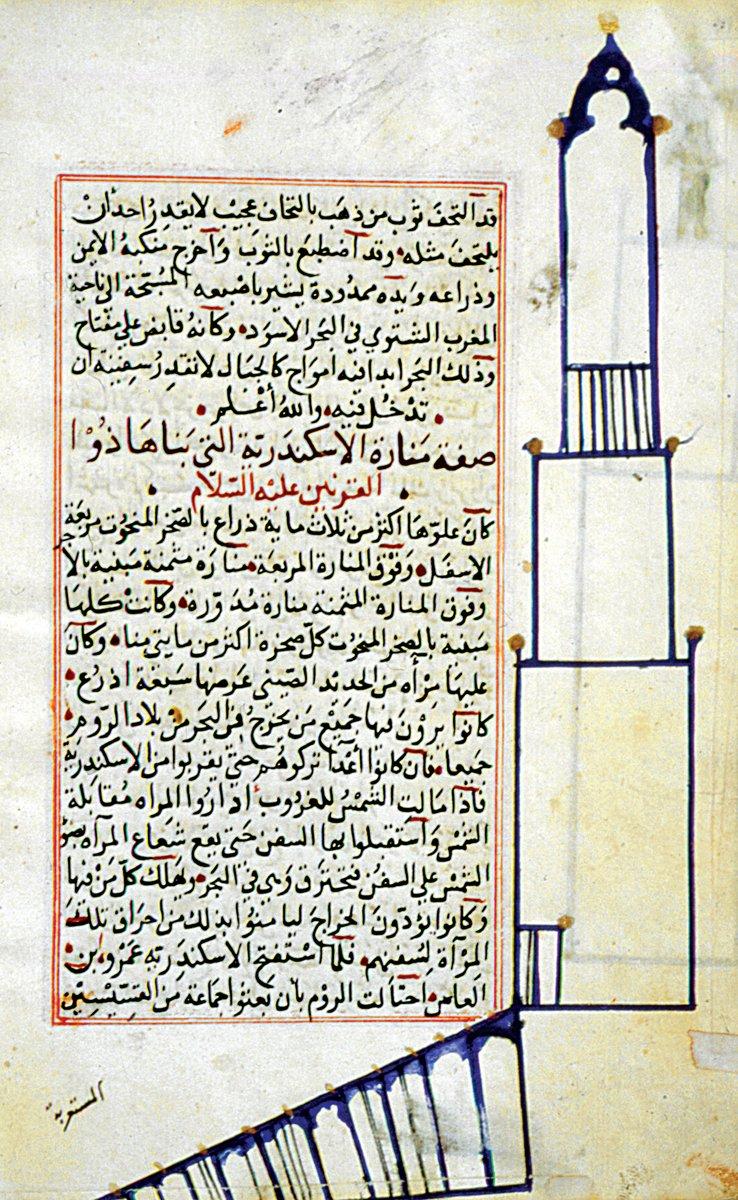 قد التحف ثوب من ذهب بالتحاف عجيب لا يقدر احد ان
يلتحف مثله وقد اضطبع بالثوب واخرج منكبه الايمن
وذراعه ويده ممدودة يشير باصبعه المسبحة الى ناحية
المغرب الشتوي في البحر الاسود وكانه قابض على مفتاح
وذلك البحر ابدا فيه امواج كالجبال لا تقدر سفينة ان
تدخل فيه والله أعلم
صفة منارة الاسكندرية التي بناها ذو ا
القرنين عليه السلام
كان علوّها اكثر من ثلاث ماية ذراع بالصخر المنحوت مربعة
الاسفل وفوق المنارة المربعة منارة مثمنة مبنية بالا
وفوق المنارة المثمنة منارة مدوّرة وكانت كلها
مبنية بالصخر المنحوت كل صخرة اكثر من مايتي منا وكان
عليها مرآه من الحديد الصيني عرضها سبعة اذرع
كانوا يرون فيها جميع من يخرج في البحر من بلاد الروم
جميعا فان كانوا أعدا تركوهم حتى يقربوا من الاسكندرية
فاذا مالت الشمس للغروب اداروا المراه مقابلة
الشمس واستقبلوا بها السفن حتى يقع شعاع المرآه بضو
الشمس على السفن فتحترق في البحر ويهلك كل من فيها
وكانوا يؤدّون الخراج ليامنوا بذلك من احراق تلك
المرآة لسفنهم فلما استفتح الاسكندرية عمرو بن
العاص احتالت الروم بان بعثوا جماعة من القسيسين
المستعربة